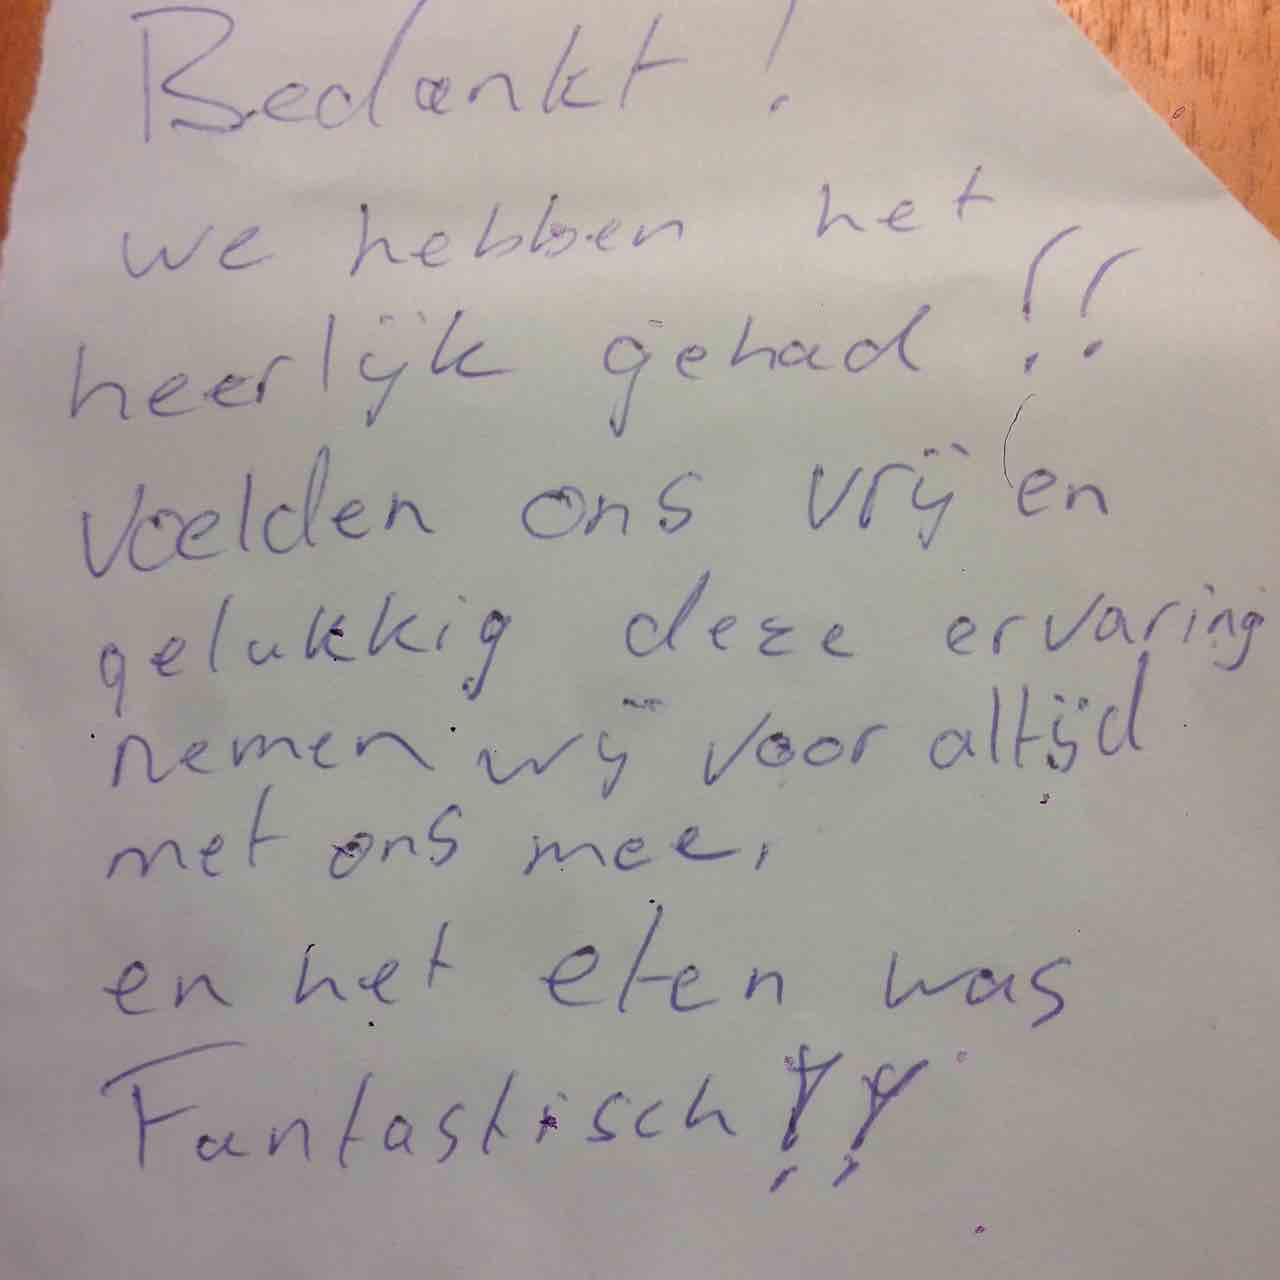 Bedankt!
we hebben het
heerlijk gehad!!
voelden ons vrij en
gelukkig deze ervaring
nemen wij voor altijd
met ons mee.
en het eten was
Fantastisch!!